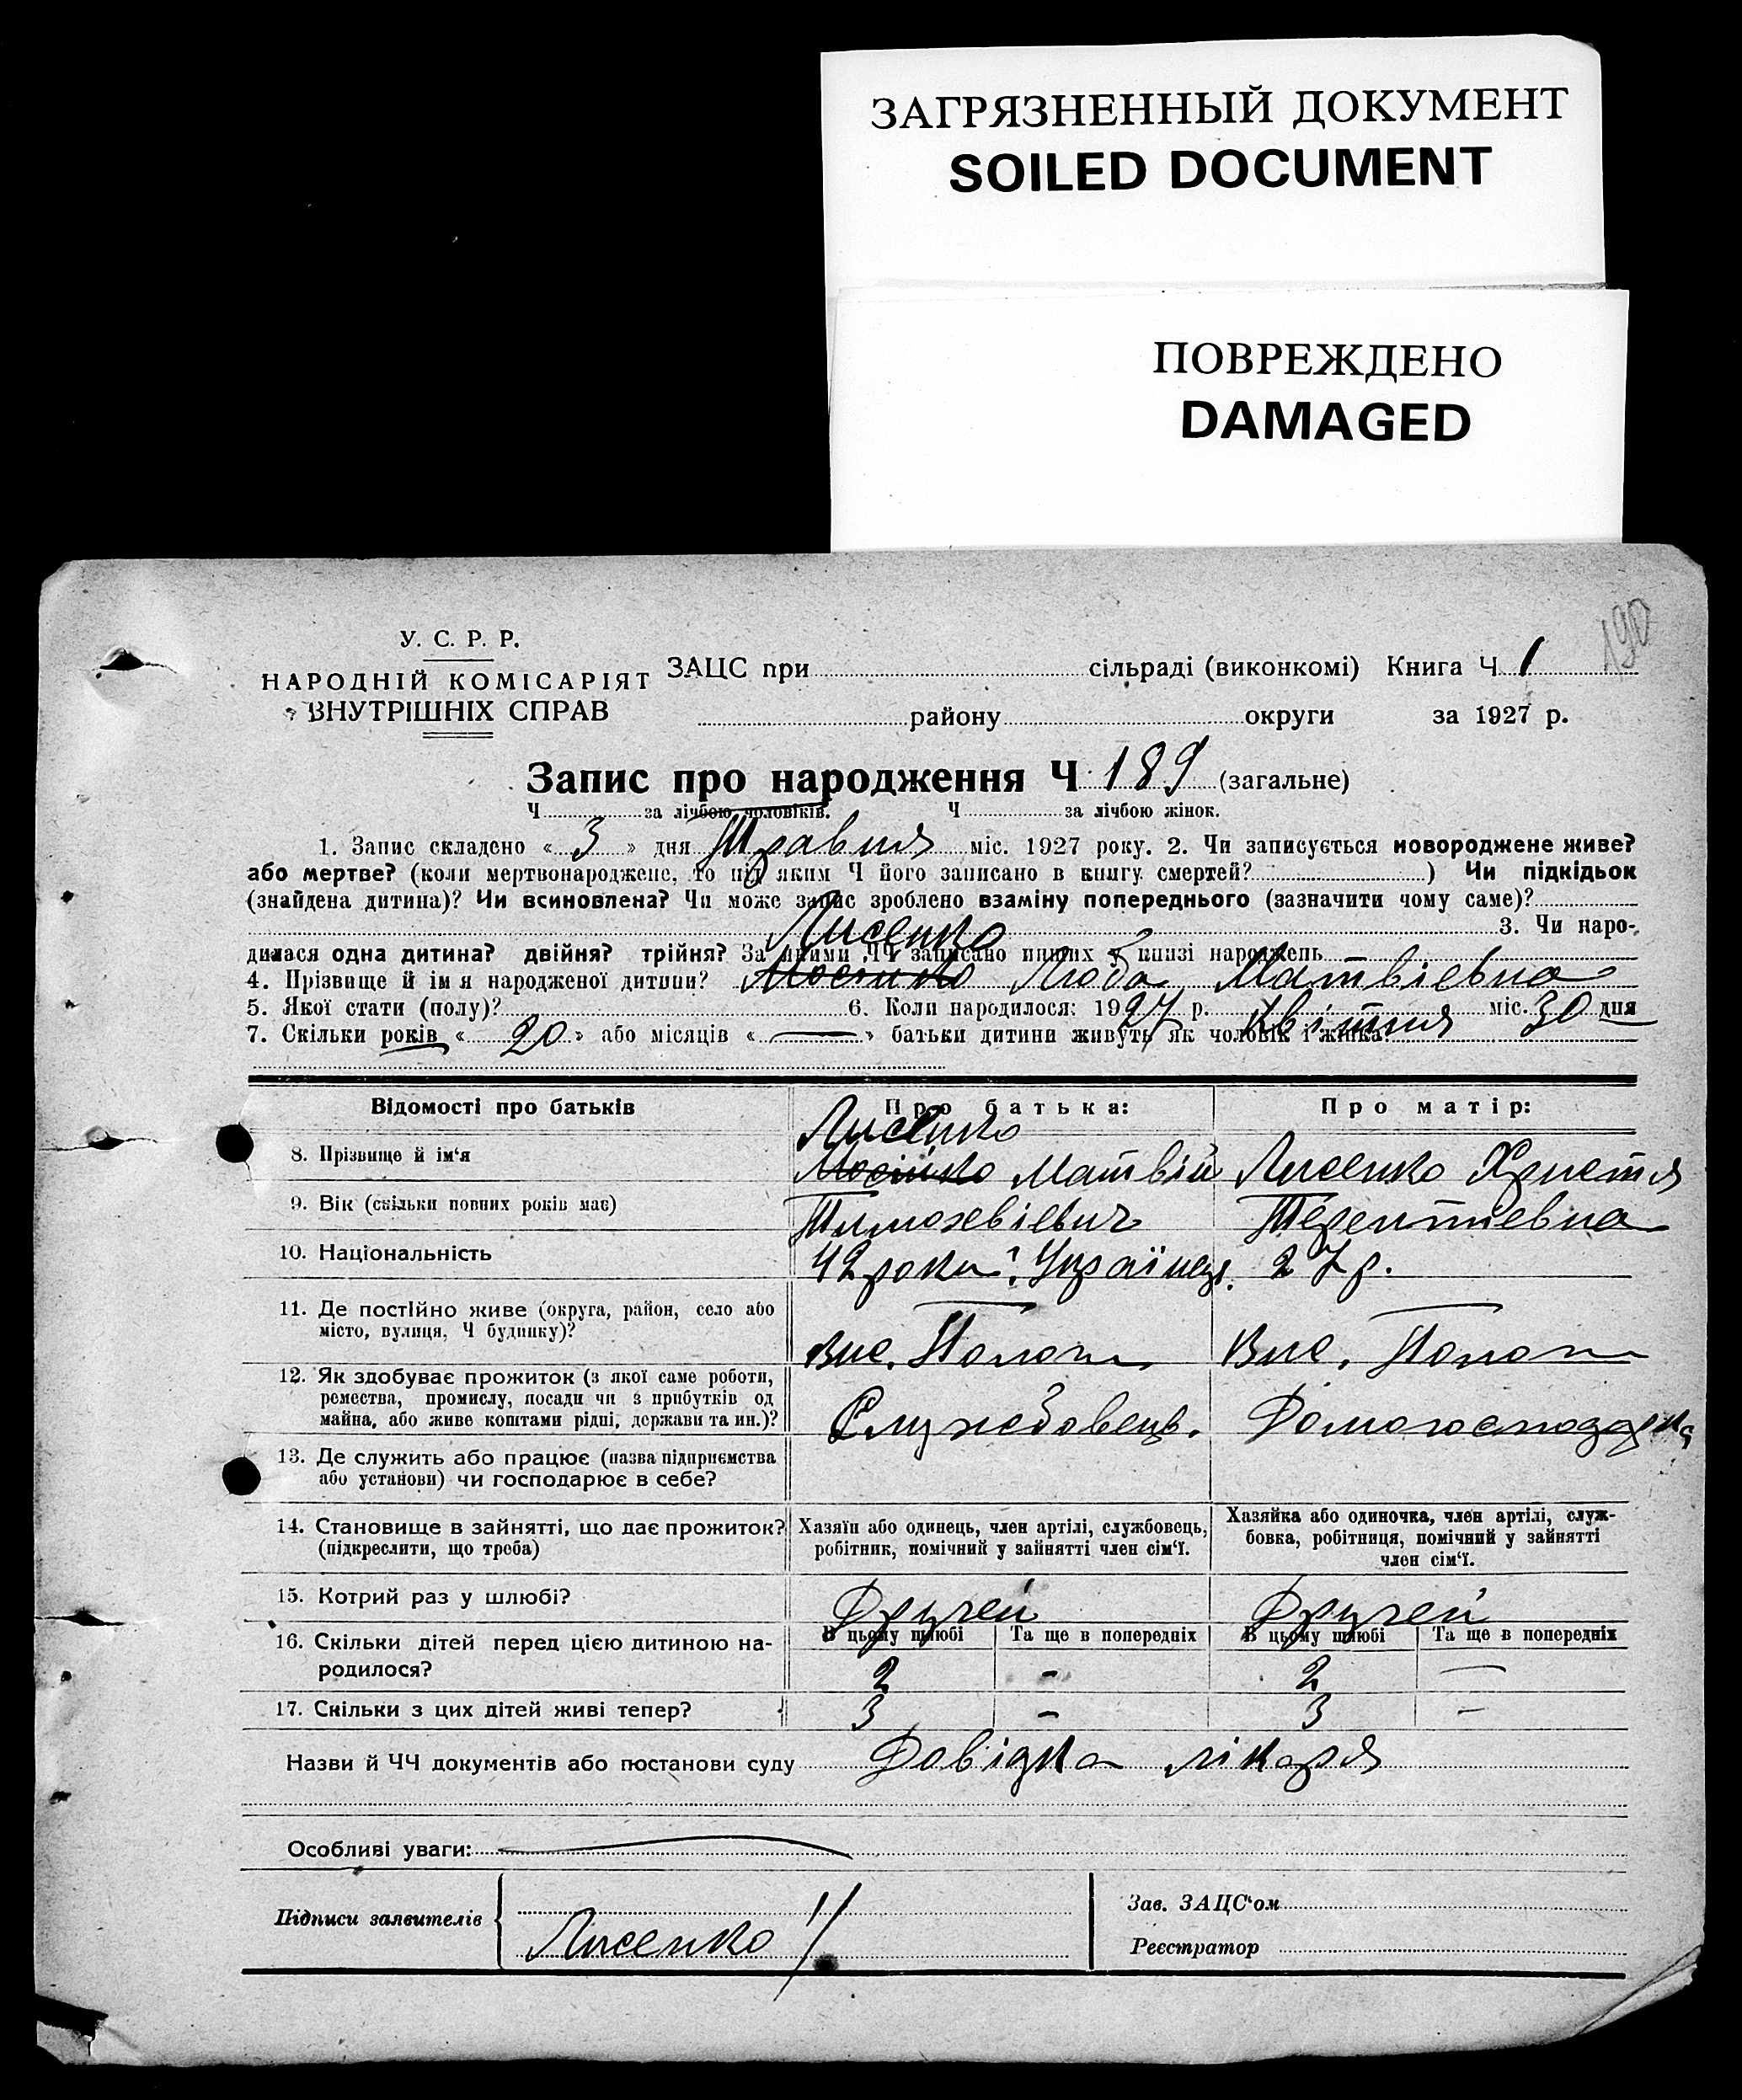 ЗАГРЯЗНЕННЫЙ ДОКУМЕНТ
SOILED DOCUMENT
ПОВРЕЖДЕНО
DAMAGED
190
У. С. Р. Р.
НАРОДНІЙ КОМІСАРІЯТ
ВНУТРІШНІХ СПРАВ
ЗАЦС при сільраді (виконкомі) Книга Ч 1
району округи за 1927 р.
Запис про народження Ч 189 (загальне)
Ч за лічбою чоловіків. Ч за лічбою жінок.
1. Запис складено « 3 » дня Травня міс. 1927 року. 2. Чи записується новороджене живе?
або мертве? (коли мертвонароджене, то під яким Ч його записано в книгу смертей? ) Чи підкідьок
(знайдена дитина)? Чи всиновлена? Чи може запис зроблено взаміну попереднього (зазначити чому саме)?
Лисенко 3. Чи наро-
дилася одна дитина? двійня? трійня? За якими ЧЧ записано инших у книзі народжень
4. Прізвище й ім я народженої дитини? Люба Матвіевна
5. Якої стати (полу)? 6. Коли народилося: 1927 р. Квітня міс. 30 дня
7. Скільки років « 20 » або місяців « — » батьки дитини живуть як чоловік і жінка?
Відомості про батьків Про батька: Про матір:
Лисенко
8. Прізвище й ім‘я Матвій Лисенко Христя
9. Вік (скільки повних років має) Тимохевіевич Терентіевна
10. Національність 42 роки. Українец. 27 р.
11. Де постійно живе (округа, район, село або
місто, вулиця, Ч будинку)? Вис. Пологи Вис. Пологи
12. Як здобуває прожиток (з якої саме роботи,
ремества, промислу, посади чи з прибутків од
майна, або живе коштами рідні, держави та ин.)? Службовець. Домогосподарка
13. Де служить або працює (назва підприємства
або установи) чи господарює в себе?
14. Становище в зайнятті, що дає прожиток?
(підкреслити, що треба)
Хазяїн або одинець, член артілі, службовець,
робітник, помічний у зайнятті член сім‘ї.
Хазяйка або одиночка, член артілі, служ-
бовка, робітниця, помічний у зайнятті
член сім‘ї.
15. Котрий раз у шлюбі? Другей Другей
16. Скільки дітей перед цією дитиною на-
родилося?
В цьому шлюбі Та ще в попередніх В цьому шлюбі Та ще в попередніх
2 - 2 —
17. Скільки з цих дітей живі тепер? 3 - 3 -
Назви й ЧЧ документів або постанови суду Довідка лікаря
Особливі уваги:
Підписи заявителів Лисенко
Зав. ЗАЦС‘ом
Реєстратор